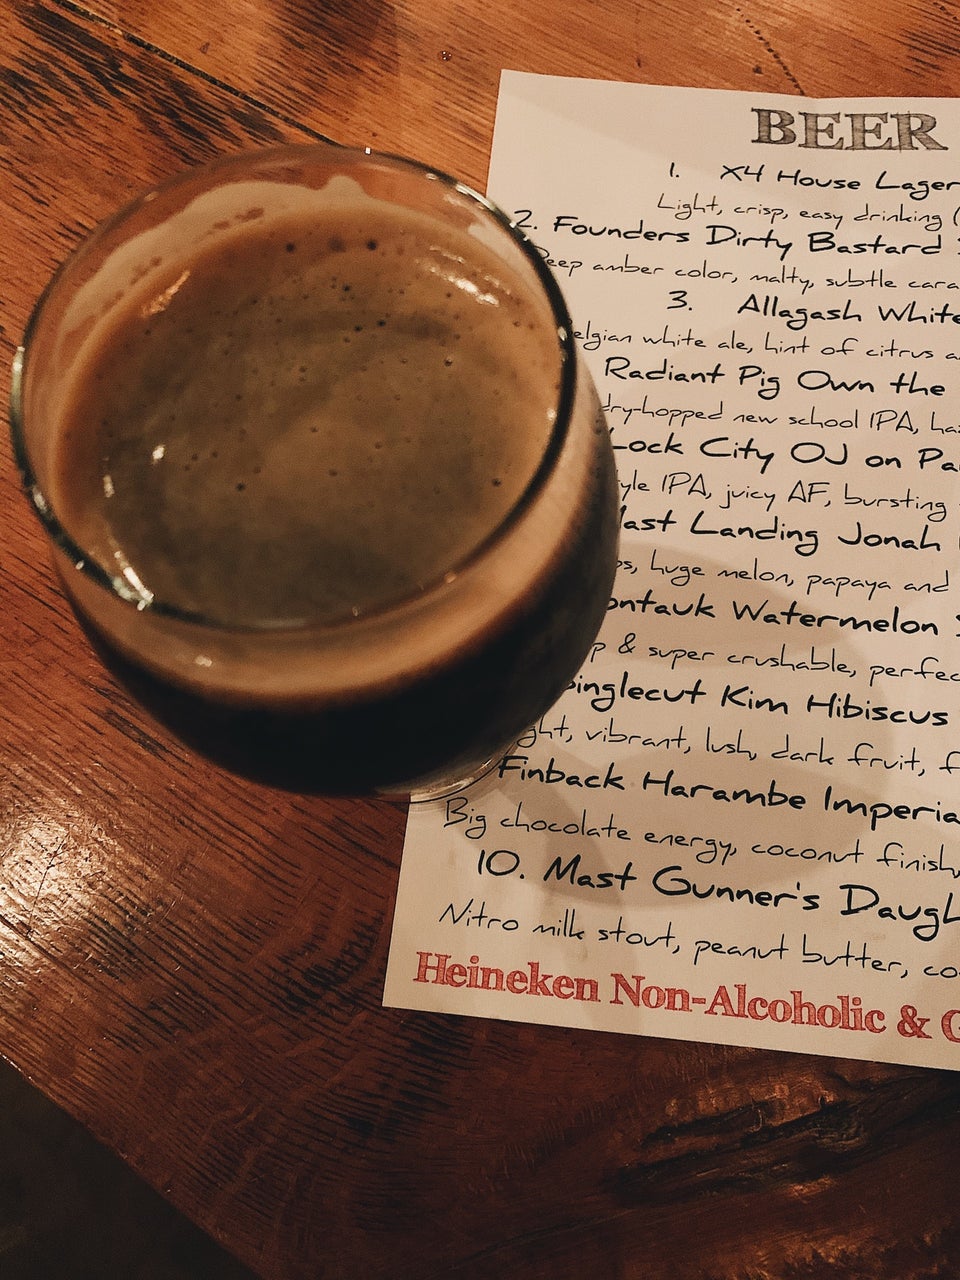 BEER
1. X4 House Lager
Light, crisp, easy drinking (
2. Founders Dirty Bastard
Deep amber color, malty, subtle
white ale, hint of citrus
3. Allagash White
Radiant Pig Own the
dry-hopped new school IPA,
Lock City OJ on
IPA, juicy AF, bursting
Landing Jonah
huge melon, papaya and
Watermelon
& super crushable,
Singlecut Kim Hibiscus
vibrant, lush, dark fruit,
Finback Harambe
Big chocolate energy, coconut finish,
10. Mast Gunner's
Nitro milk stout, peanut butter,
Heineken Non-Alcoholic &